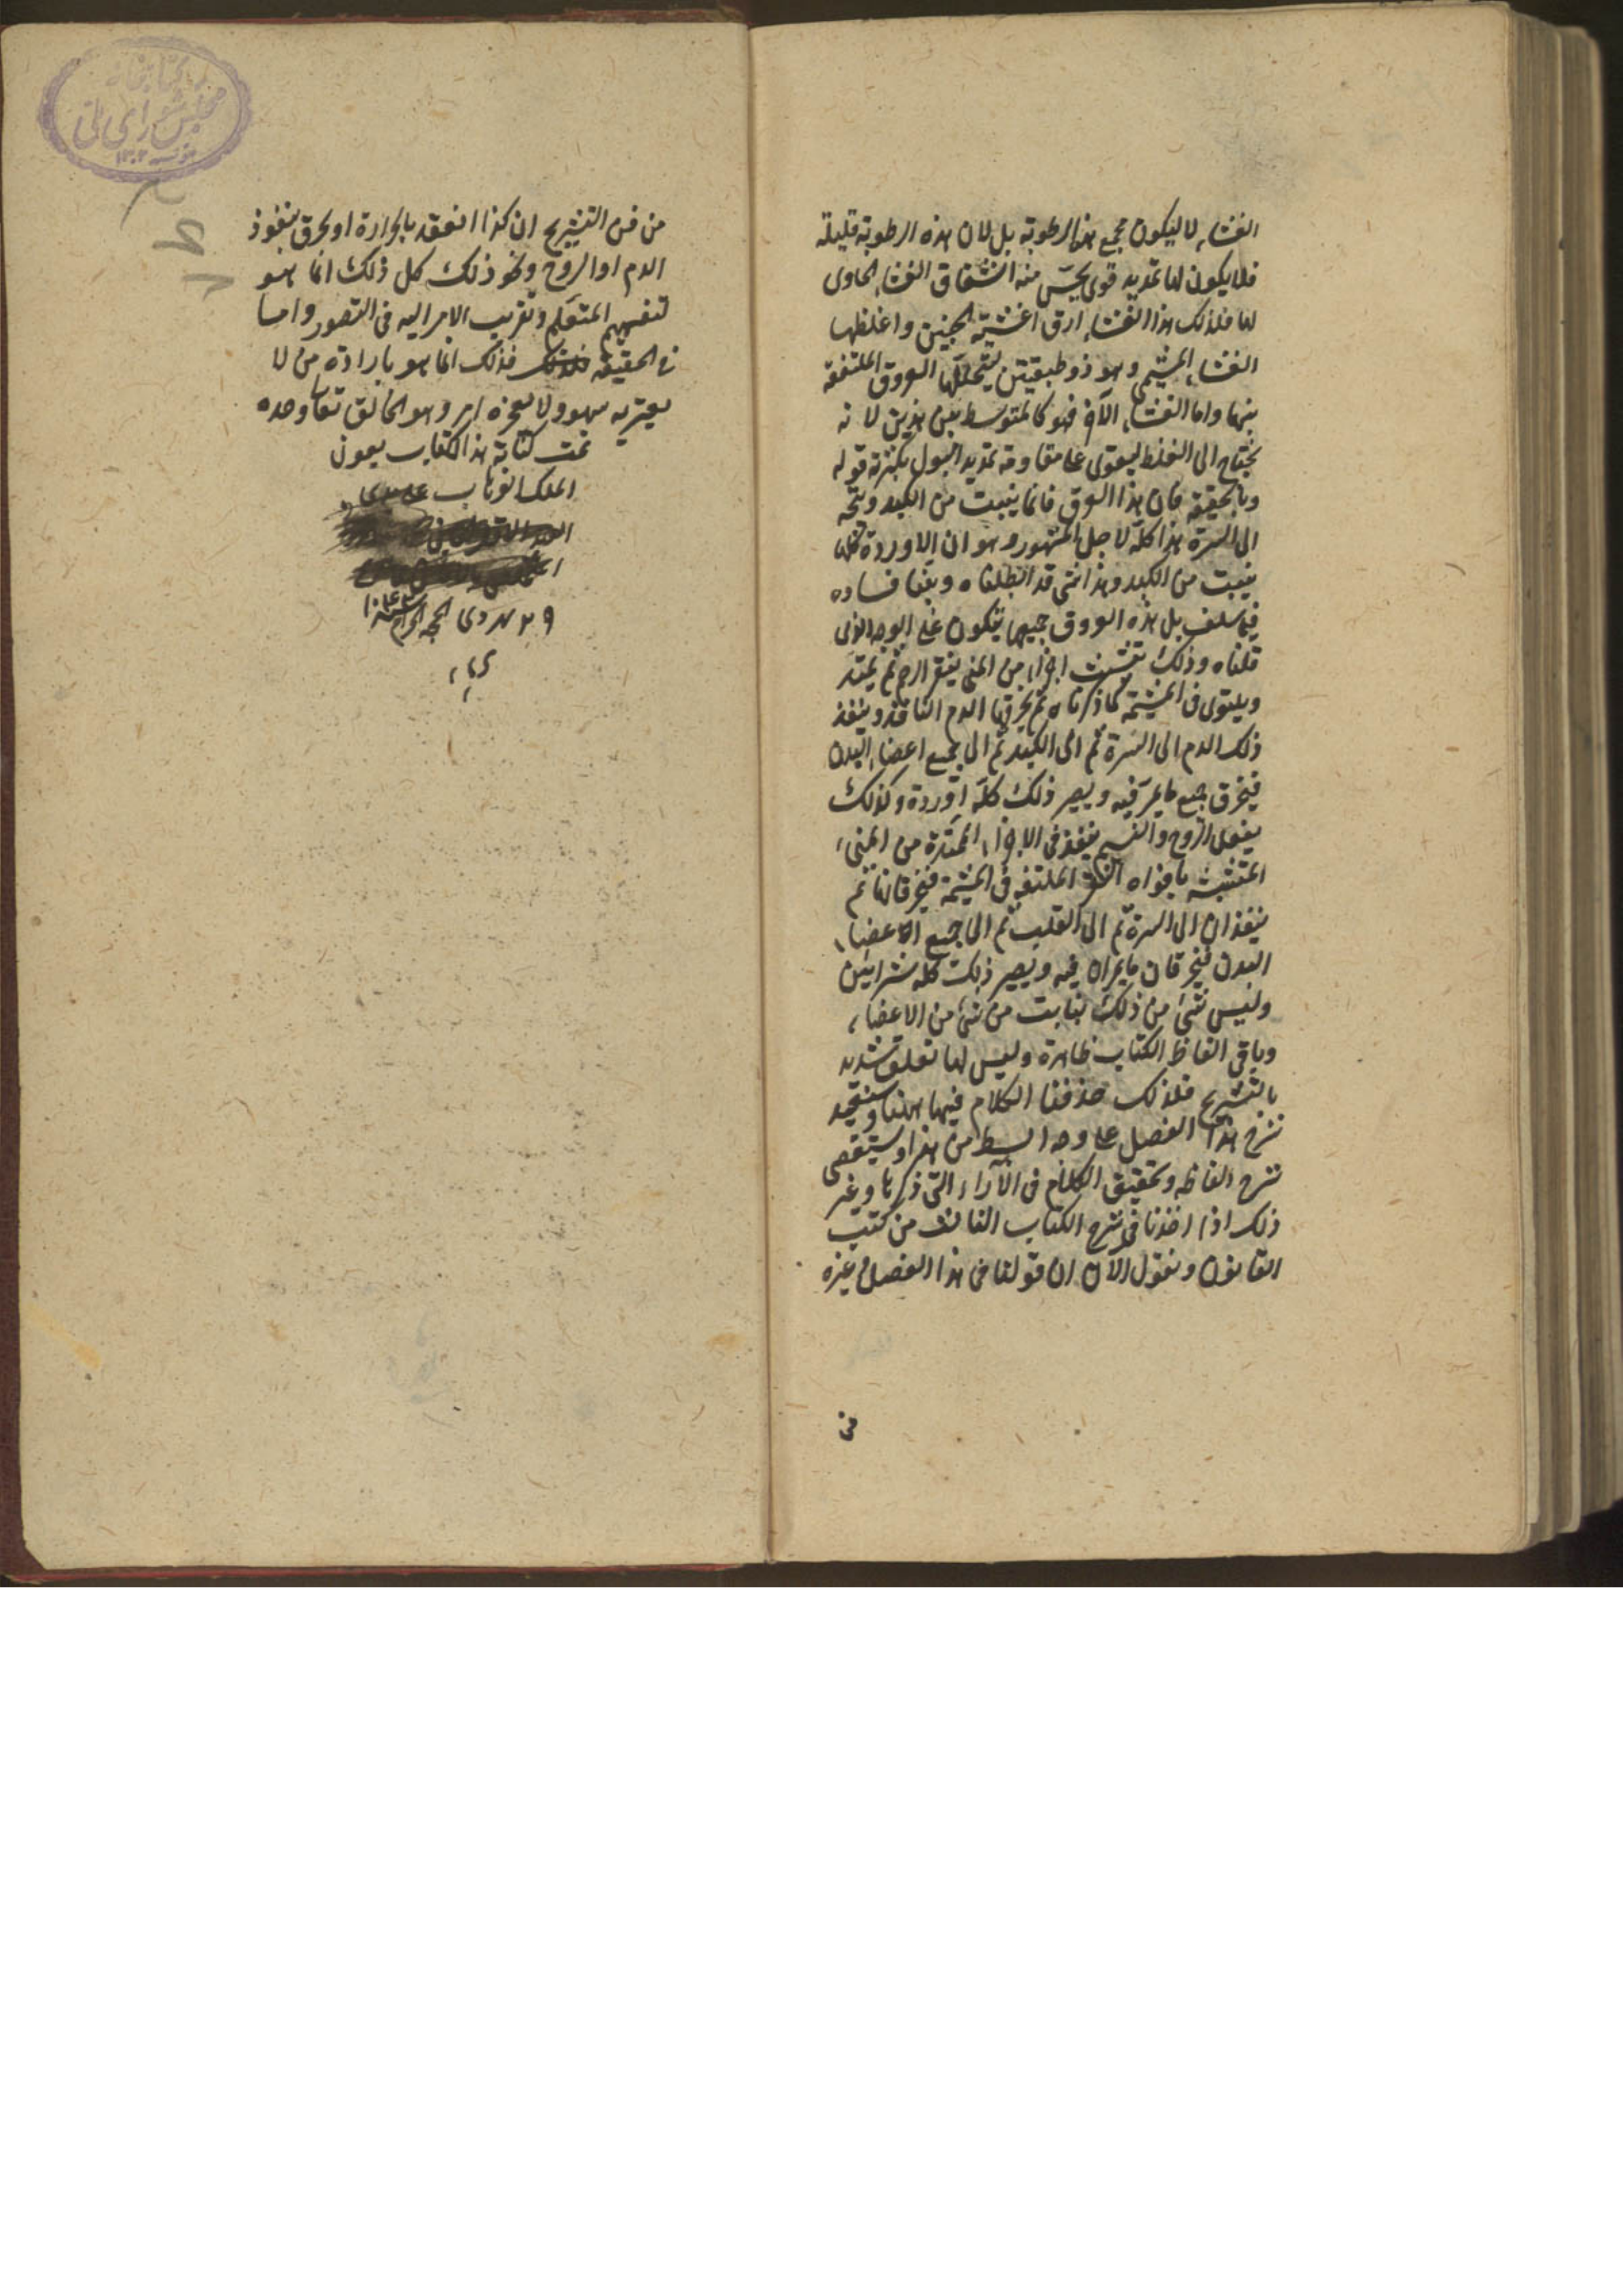 الغشاء لا ليكون مجمع هذه الرطوبة بل لان هذه الرطوبة قليلة
فلا يكون لها تمديد قوى يحس منه انشقاق الغشاء الحاوى
لها فلذلك هذا الغشاء ارق اغشية الجنين واغلظها
الغشاء المشيمى وهو ذو طبقتين ليتخللها العروق الملتفة
بينها واما الغشاء الآخر فهو كالمتوسط بين هذين لانه
يحتاج الى الغلظ ليقوى على مقاومة تمديد البول بكثرته قوله
وبالحقيقة فان هذا العروق فانما ينبت من الكبد ويتجه
الى السرة هذا كله لاجل المشهور وهو ان الاوردة كلها
ينبت من الكبد وهذا شئ قد ابطلناه وبينا فساده
فيما سلف بل هذه العروق جميعها يتكون على الوجه الذى
قلناه وذلك بتشبث اجزاء من المنى بنقر الرحم ثم يمتد
ويلتوى فى المشيمة كما ذكرناه ثم يخرقها الدم النافذ وينفذ
ذلك الدم الى السرة ثم الى الكبد ثم الى جميع اعضاء البدن
فيخرق جميع ما يمر فيه ويصير ذلك كله اوردة وكذلك
يفعل الروح والنسيم ينفذ فى الاجزاء الممتدة من المنى
المتشبثة بافواه الملتفه فى المشيمة فيخرقانها ثم
ينفذان الى السرة ثم الى القلب ثم الى جميع الاعضاء
البدن فيخرقان ما يمران فيه ويصير ذلك كله شرايين
وليس شئ من ذلك بنابت من شئ من الاعضاء
وباقى الفاظ الكتاب ظاهرة وليس لها تعلق شديد
بالتشريح فلذلك حذفنا الكلام فيها ههنا وسنعيد
شرح هذا الفصل على وجه ابسط من هذا ونستقصى
شرح الفاظه وتحقيق الكلام فى الآراء التى ذكرها وغير
ذلك اذا اخذنا فى شرح الكتاب الثالث من كتب
القانون ونقول الآن ان قولنا فى هذا الفصل وغيره
من
من فن التشريح ان كذا انعقد بالحرارة او يخرق بنفوذ
الدم او الروح ونحو ذلك كل ذلك انما هو
لتفهيم المتعلم وتقريب الامر اليه فى التصور واما
فى الحقيقة فذلك انما هو بارادة من لا
يعتريه سهو ولا يعجزه امر وهو الخالق تعالى وحده
تمت كتابة هذا الكتاب بعون
الملك الوهاب
٢٩ شهر ذى الحجة الحرام
كتابخانه
مجلس شوراى ملى
١٣٠٢